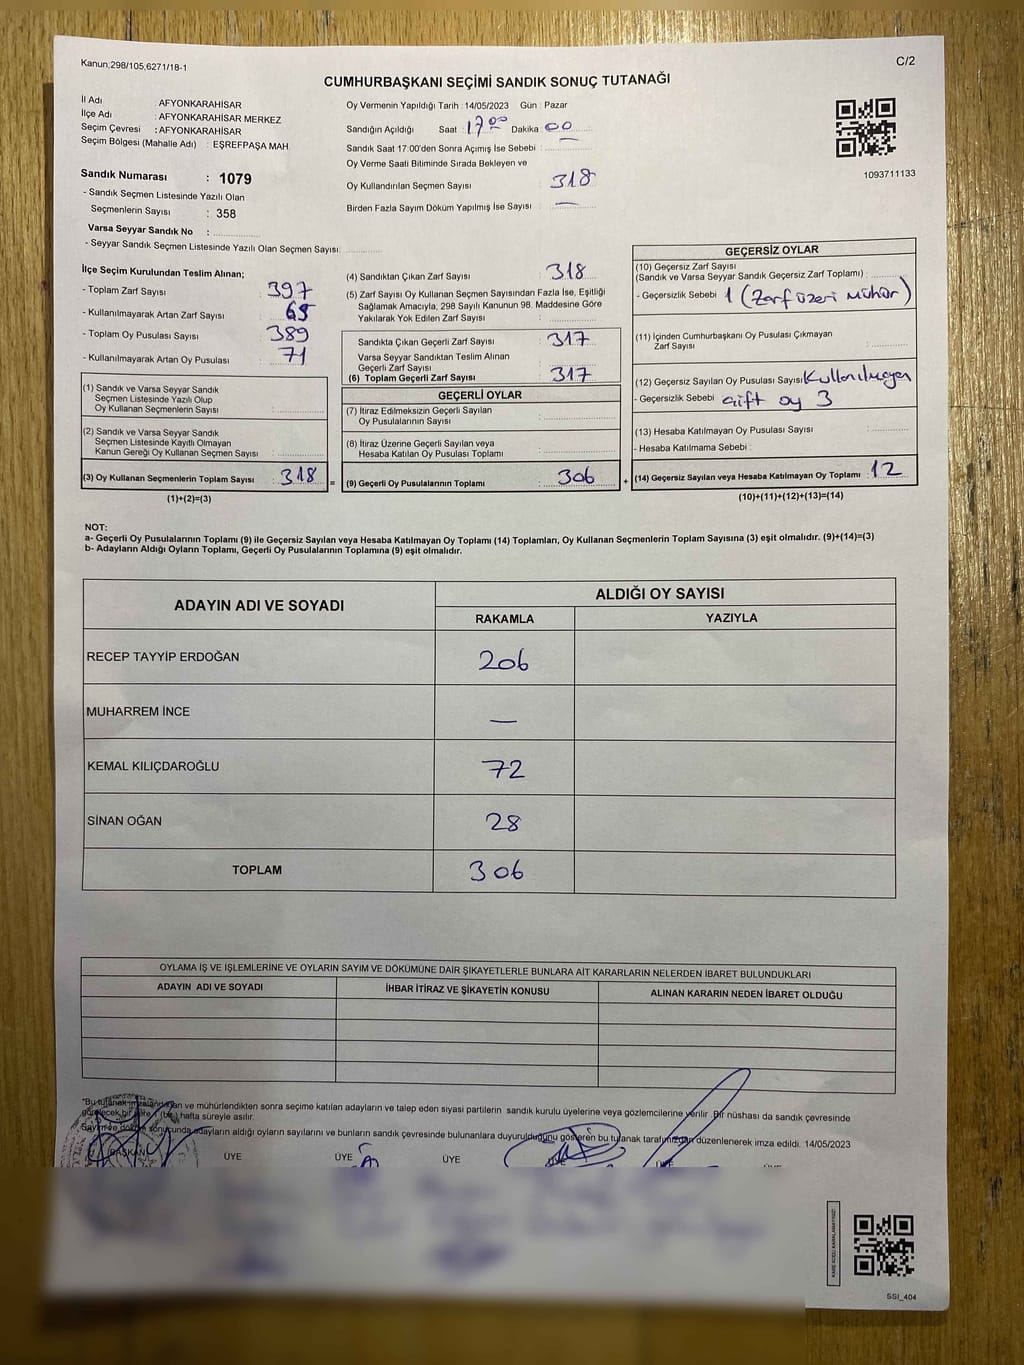 Kanun;298/105,6271/18-1
C/2
CUMHURBAŞKANI SEÇİMİ SANDIK SONUÇ TUTANAĞI
İl Adı : AFYONKARAHİSAR
İlçe Adı : AFYONKARAHİSAR MERKEZ
Seçim Çevresi : AFYONKARAHİSAR
Seçim Bölgesi (Mahalle Adı) : EŞREFPAŞA MAH.
Sandık Numarası : 1079
- Sandık Seçmen Listesinde Yazılı Olan
Seçmenlerin Sayısı : 358
Varsa Seyyar Sandık No :
- Seyyar Sandık Seçmen Listesinde Yazılı Olan Seçmen Sayısı:
Oy Vermenin Yapıldığı Tarih : 14/05/2023 Gün : Pazar
Sandığın Açıldığı Saat : 17 00 Dakika : 00
Sandık Saat 17:00'den Sonra Açımış İse Sebebi : —
Oy Verme Saati Bitiminde Sırada Bekleyen ve
Oy Kullandırılan Seçmen Sayısı : 318
Birden Fazla Sayım Döküm Yapılmış İse Sayısı : —
1093711133
İlçe Seçim Kurulundan Teslim Alınan;
- Toplam Zarf Sayısı : 397
- Kullanılmayarak Artan Zarf Sayısı :
- Toplam Oy Pusulası Sayısı : 389
- Kullanılmayarak Artan Oy Pusulası : 71
(1) Sandık ve Varsa Seyyar Sandık
Seçmen Listesinde Yazılı Olup
Oy Kullanan Seçmenlerin Sayısı :
(2) Sandık ve Varsa Seyyar Sandık
Seçmen Listesinde Kayıtlı Olmayan
Kanun Gereği Oy Kullanan Seçmen Sayısı :
(3) Oy Kullanan Seçmenlerin Toplam Sayısı : 318 =
(1)+(2)=(3)
(4) Sandıktan Çıkan Zarf Sayısı : 318
(5) Zarf Sayısı Oy Kullanan Seçmen Sayısından Fazla İse, Eşitliği
Sağlamak Amacıyla, 298 Sayılı Kanunun 98. Maddesine Göre
Yakılarak Yok Edilen Zarf Sayısı :
Sandıkta Çıkan Geçerli Zarf Sayısı : 317
Varsa Seyyar Sandıktan Teslim Alınan
Geçerli Zarf Sayısı :
(6) Toplam Geçerli Zarf Sayısı : 317
GEÇERLİ OYLAR
(7) İtiraz Edilmeksizin Geçerli Sayılan
Oy Pusulasının Sayısı :
(8) İtiraz Üzerine Geçerli Sayılan veya
Hesaba Katılan Oy Pusulası Toplamı :
(9) Geçerli Oy Pusulalarının Toplamı : 306 +
GEÇERSİZ OYLAR
(10) Geçersiz Zarf Sayısı
(Sandık ve Varsa Seyyar Sandık Geçersiz Zarf Toplamı) :
- Geçersizlik Sebebi : 1 (Zarf üzeri mühür)
(11) İçinden Cumhurbaşkanı Oy Pusulası Çıkmayan
Zarf Sayısı :
(12) Geçersiz Sayılan Oy Pusulası Sayısı Kullanılmayan
- Geçersizlik Sebebi : çift oy 3
(13) Hesaba Katılmayan Oy Pusulası Sayısı :
- Hesaba Katılmama Sebebi :
(14) Geçersiz Sayılan veya Hesaba Katılmayan Oy Toplamı : 12
(10)+(11)+(12)+(13)=(14)
NOT:
a- Geçerli Oy Pusulasının Toplamı (9) ile Geçersiz Sayılan veya Hesaba Katılmayan Oy Toplamı (14) Toplamları, Oy Kullanan Seçmenlerin Toplam Sayısına (3) eşit olmalıdır. (9)+(14)=(3)
b- Adayların Aldığı Oyların Toplamı, Geçerli Oy Pusulalarının Toplamına (9) eşit olmalıdır.
ADAYIN ADI VE SOYADI
ALDIĞI OY SAYISI
RAKAMLA YAZIYLA
RECEP TAYYİP ERDOĞAN 206
MUHARREM İNCE —
KEMAL KILIÇDAROĞLU 72
SİNAN OĞAN 28
TOPLAM 306
OYLAMA İŞ VE İŞLEMLERİNE VE OYLARIN SAYIM VE DÖKÜMÜNE DAİR ŞİKAYETLERLE BUNLARA AİT KARARLARIN NELERDEN İBARET BULUNDUKLARI
ADAYIN ADI VE SOYADI İHBAR İTİRAZ VE ŞİKAYETİN KONUSU ALINAN KARARIN NEDEN İBARET OLDUĞU
"Bu tutanak imzalandıktan ve mühürlendikten sonra seçime katılan adayların ve talep eden siyasi partilerin sandık kurulu üyelerine veya gözlemcilerine verilir. Bir nüshası da sandık çevresinde
görelecek bir yere 1 (bir) hafta süreyle asılır.
Sayım ve döküm sonucunda adayların aldığı oyların sayılarını ve bunların sandık çevresinde bulunanlara duyurulduğunu gösteren bu tutanak tarafımızdan düzenlenerek imza edildi. 14/05/2023
BAŞKAN ÜYE ÜYE ÜYE ÜYE ÜYE
SSI_404